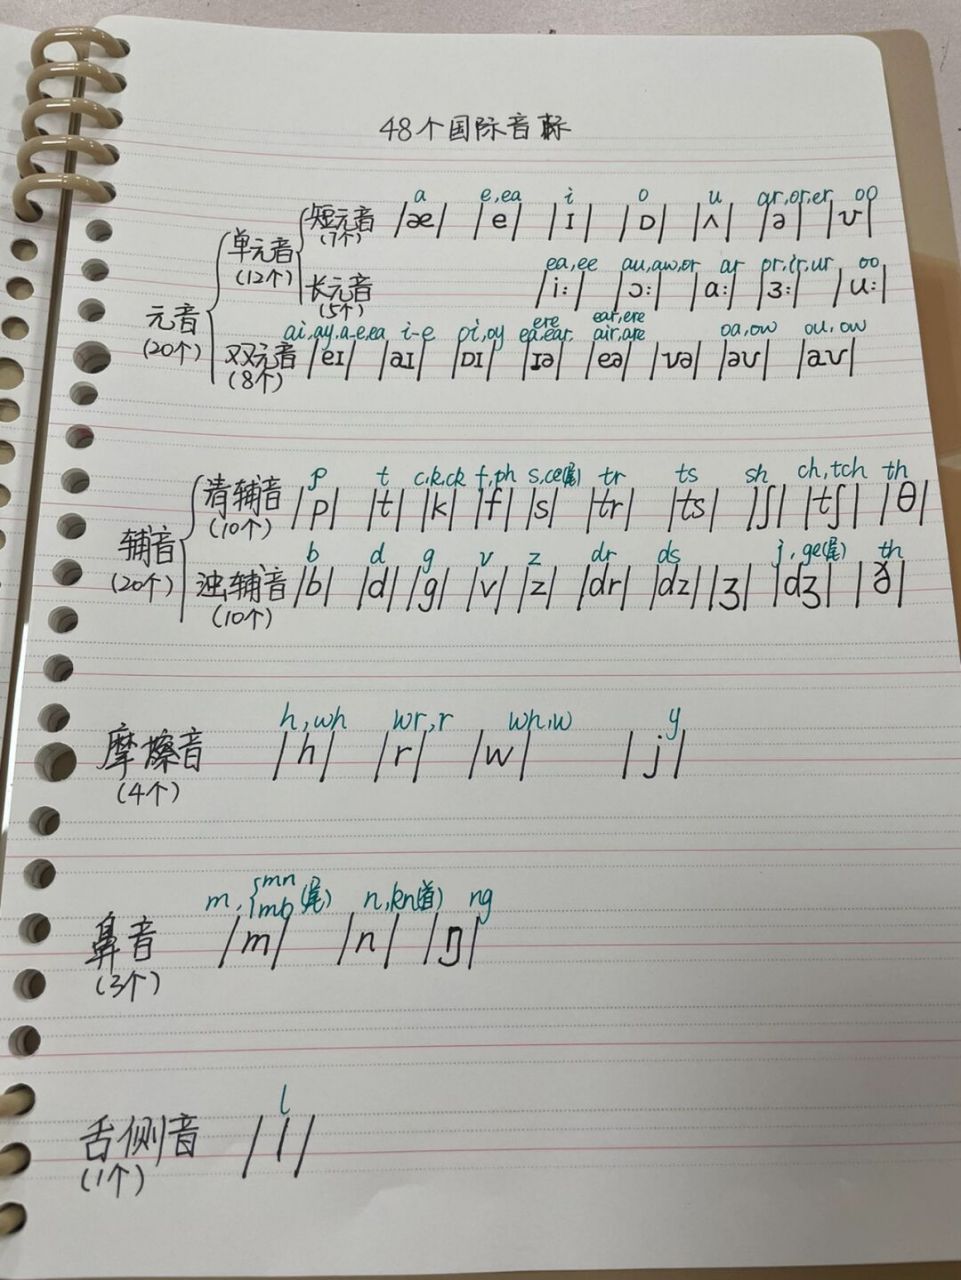 48个国际音标
a e,ea i o u ar,or,er oo
短元音 |æ| |e| |ɪ| |ɒ| |ʌ| |ə| |ʊ|
(7个)
单元音
(12个)
ea,ee au,aw,or ar or,ir,ur oo
长元音 |i:| |ɔ:| |ɑ:| |ɜ:| |u:|
(5个)
元音
(20个)
ere ear,ere
ai,ay,a-e,ea i-e oi,oy ea,ear air,are oa,ow ou,ow
双元音 |eɪ| |aɪ| |ɒɪ| |ɪə| |eə| |ʊə| |əʊ| |aʊ|
(8个)
p t c,k,ck f,ph s,ce(尾) tr ts sh ch,tch th
清辅音 |p| |t| |k| |f| |s| |tr| |ts| |ʃ| |tʃ| |θ|
(10个)
辅音
(20个)
b d g v z dr ds j,ge(尾) th
浊辅音 |b| |d| |g| |v| |z| |dr| |dz| |ʒ| |dʒ| |ð|
(10个)
h,wh wr,r wh,w y
摩擦音 |h| |r| |w| |j|
(4个)
mn
m, mb (尾) n,kn(首) ng
鼻音 |m| |n| |ŋ|
(3个)
l
舌侧音 |l|
(1个)